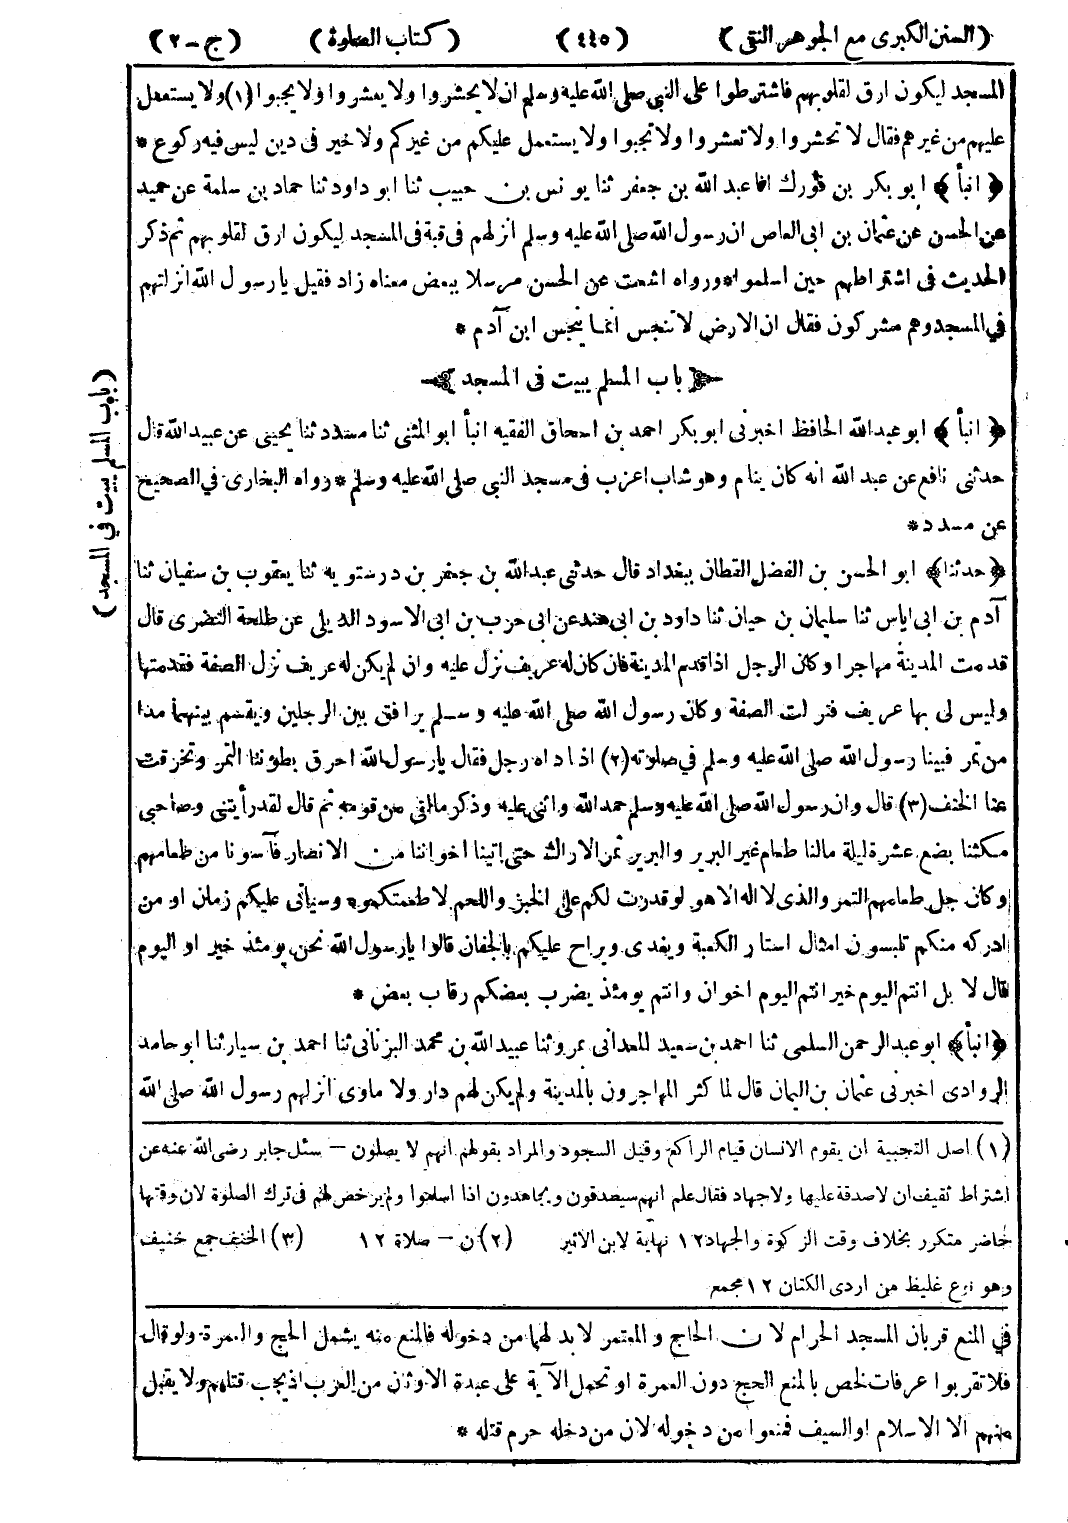 (السنن الكبرى مع الجوهر النقى) (٤٤٥) (كتاب الصلوة) (ج - ٢)
المسجد ليكون ارق لقلوبهم فاشترطوا على النبي صلى الله عليه وسلم ان لا يحشروا ولا يعشروا ولا يجبوا (١) ولا يستعمل
عليهم من غيرهم فقال لا تحشروا ولا تعشروا ولا تجبوا ولا يستعمل عليكم من غيركم ولا خير فى دين ليس فيه ركوع *
﴿ انبأ ﴾ ابو بكر بن فورك انا عبد الله بن جعفر ثنا يونس بن حبيب ثنا ابو داود ثنا حماد بن سلمة عن حميد
عن الحسن عن عثمان بن ابى العاص ان رسول الله صلى الله عليه وسلم انزلهم فى قبة فى المسجد ليكون ارق لقلوبهم ثم ذكر
الحديث فى اشتراطهم حين اسلموا * ورواه اشعث عن الحسن مرسلا ببعض معناه زاد فقيل يا رسول الله انزلتهم
في المسجد وهم مشركون فقال ان الارض لا تنجس انما ينجس ابن آدم *
باب المسلم يبيت فى المسجد
(باب المسلم يبيت في المسجد)
﴿ انبأ ﴾ ابو عبد الله الحافظ اخبرنى ابو بكر احمد بن اسحاق الفقيه انبأ ابو المثنى ثنا مسدد ثنا يحيى عن عبيد الله قال
حدثنى نافع عن عبد الله انه كان ينام وهو شاب اعزب فى مسجد النبى صلى الله عليه وسلم * رواه البخارى في الصحيح
عن مسدد *
﴿ حدثنا ﴾ ابو الحسن بن الفضل القطان ببغداد قال حدثنى عبد الله بن جعفر بن درستويه ثنا يعقوب بن سفيان ثنا
آدم بن ابى اياس ثنا سليمان بن حيان ثنا داود بن ابى هند عن ابى حرب بن ابى الاسود الديلى عن طلحة النضرى قال
قدمت المدينة مهاجرا وكان الرجل اذا قدم المدينة فان كان له عريف نزل عليه وان لم يكن له عريف نزل الصفة فقدمتها
وليس لى بها عريف فنزلت الصفة وكان رسول الله صلى الله عليه وسلم يرافق بين الرجلين ويقسم بينهما مدا
من تمر فبينا رسول الله صلى الله عليه وسلم في صلوته (٢) اذ ناداه رجل فقال يا رسول الله احرق بطوننا التمر وتخرقت
عنا الخنف (٣) قال وان رسول الله صلى الله عليه وسلم حمد الله واثنى عليه وذكر مالقى من قومه ثم قال لقد رأيتنى وصاحبى
مكثنا بضع عشرة ليلة مالنا طعام غير البرير والبرير ثمر الاراك حتى اتينا اخواننا من الانصار فآسونا من طعامهم
وكان جل طعامهم التمر والذى لا اله الا هو لو قدرت لكم على الخبز واللحم لاطعمتكموه وسياتى عليكم زمان او من
ادركه منكم تلبسون امثال استار الكعبة ويغدى ويراح عليكم بالجفان قالوا يا رسول الله نحن يومئذ خير او اليوم
قال لا بل انتم اليوم خير انتم اليوم اخوان وانتم يومئذ يضرب بعضكم رقاب بعض *
﴿ انبأ ﴾ ابو عبد الرحمن السلمى ثنا احمد بن سعيد المعدانى بمرو ثنا عبيد الله بن محمد البزنانى ثنا احمد بن سيار ثنا ابو حامد
الروادى اخبرنى عثمان بن اليمان قال لما كثر المهاجرون بالمدينة ولم يكن لهم دار ولا ماوى انزلهم رسول الله صلى الله
(١) اصل التجبية ان يقوم الانسان قيام الراكع وقيل السجود والمراد بقولهم انهم لا يصلون - سئل جابر رضى الله عنه عن
اشتراط ثقيف ان لا صدقة عليها ولا جهاد فقال علم انهم سيصدقون ويجاهدون اذا اسلموا ولم يرخص لهم فى ترك الصلوة لان وقتها
حاضر متكرر بخلاف وقت الزكوة والجهاد ١٢ نهاية لابن الاثير (٢) ن - صلاة ١٢ (٣) الخنف جمع خنيف
وهو نوع غليظ من اردى الكتان ١٢ مجمع
في المنع قربان المسجد الحرام لان الحاج والمعتمر لابد لهما من دخوله فالمنع منه يشمل الحج والعمرة ولو قال
فلا تقربوا عرفات لخص بالمنع الحج دون العمرة او تحمل الآية على عبدة الاوثان من العرب اذ يجب قتلهم ولا يقبل
منهم الا الاسلام او السيف فمنعوا من دخوله لان من دخله حرم قتله *